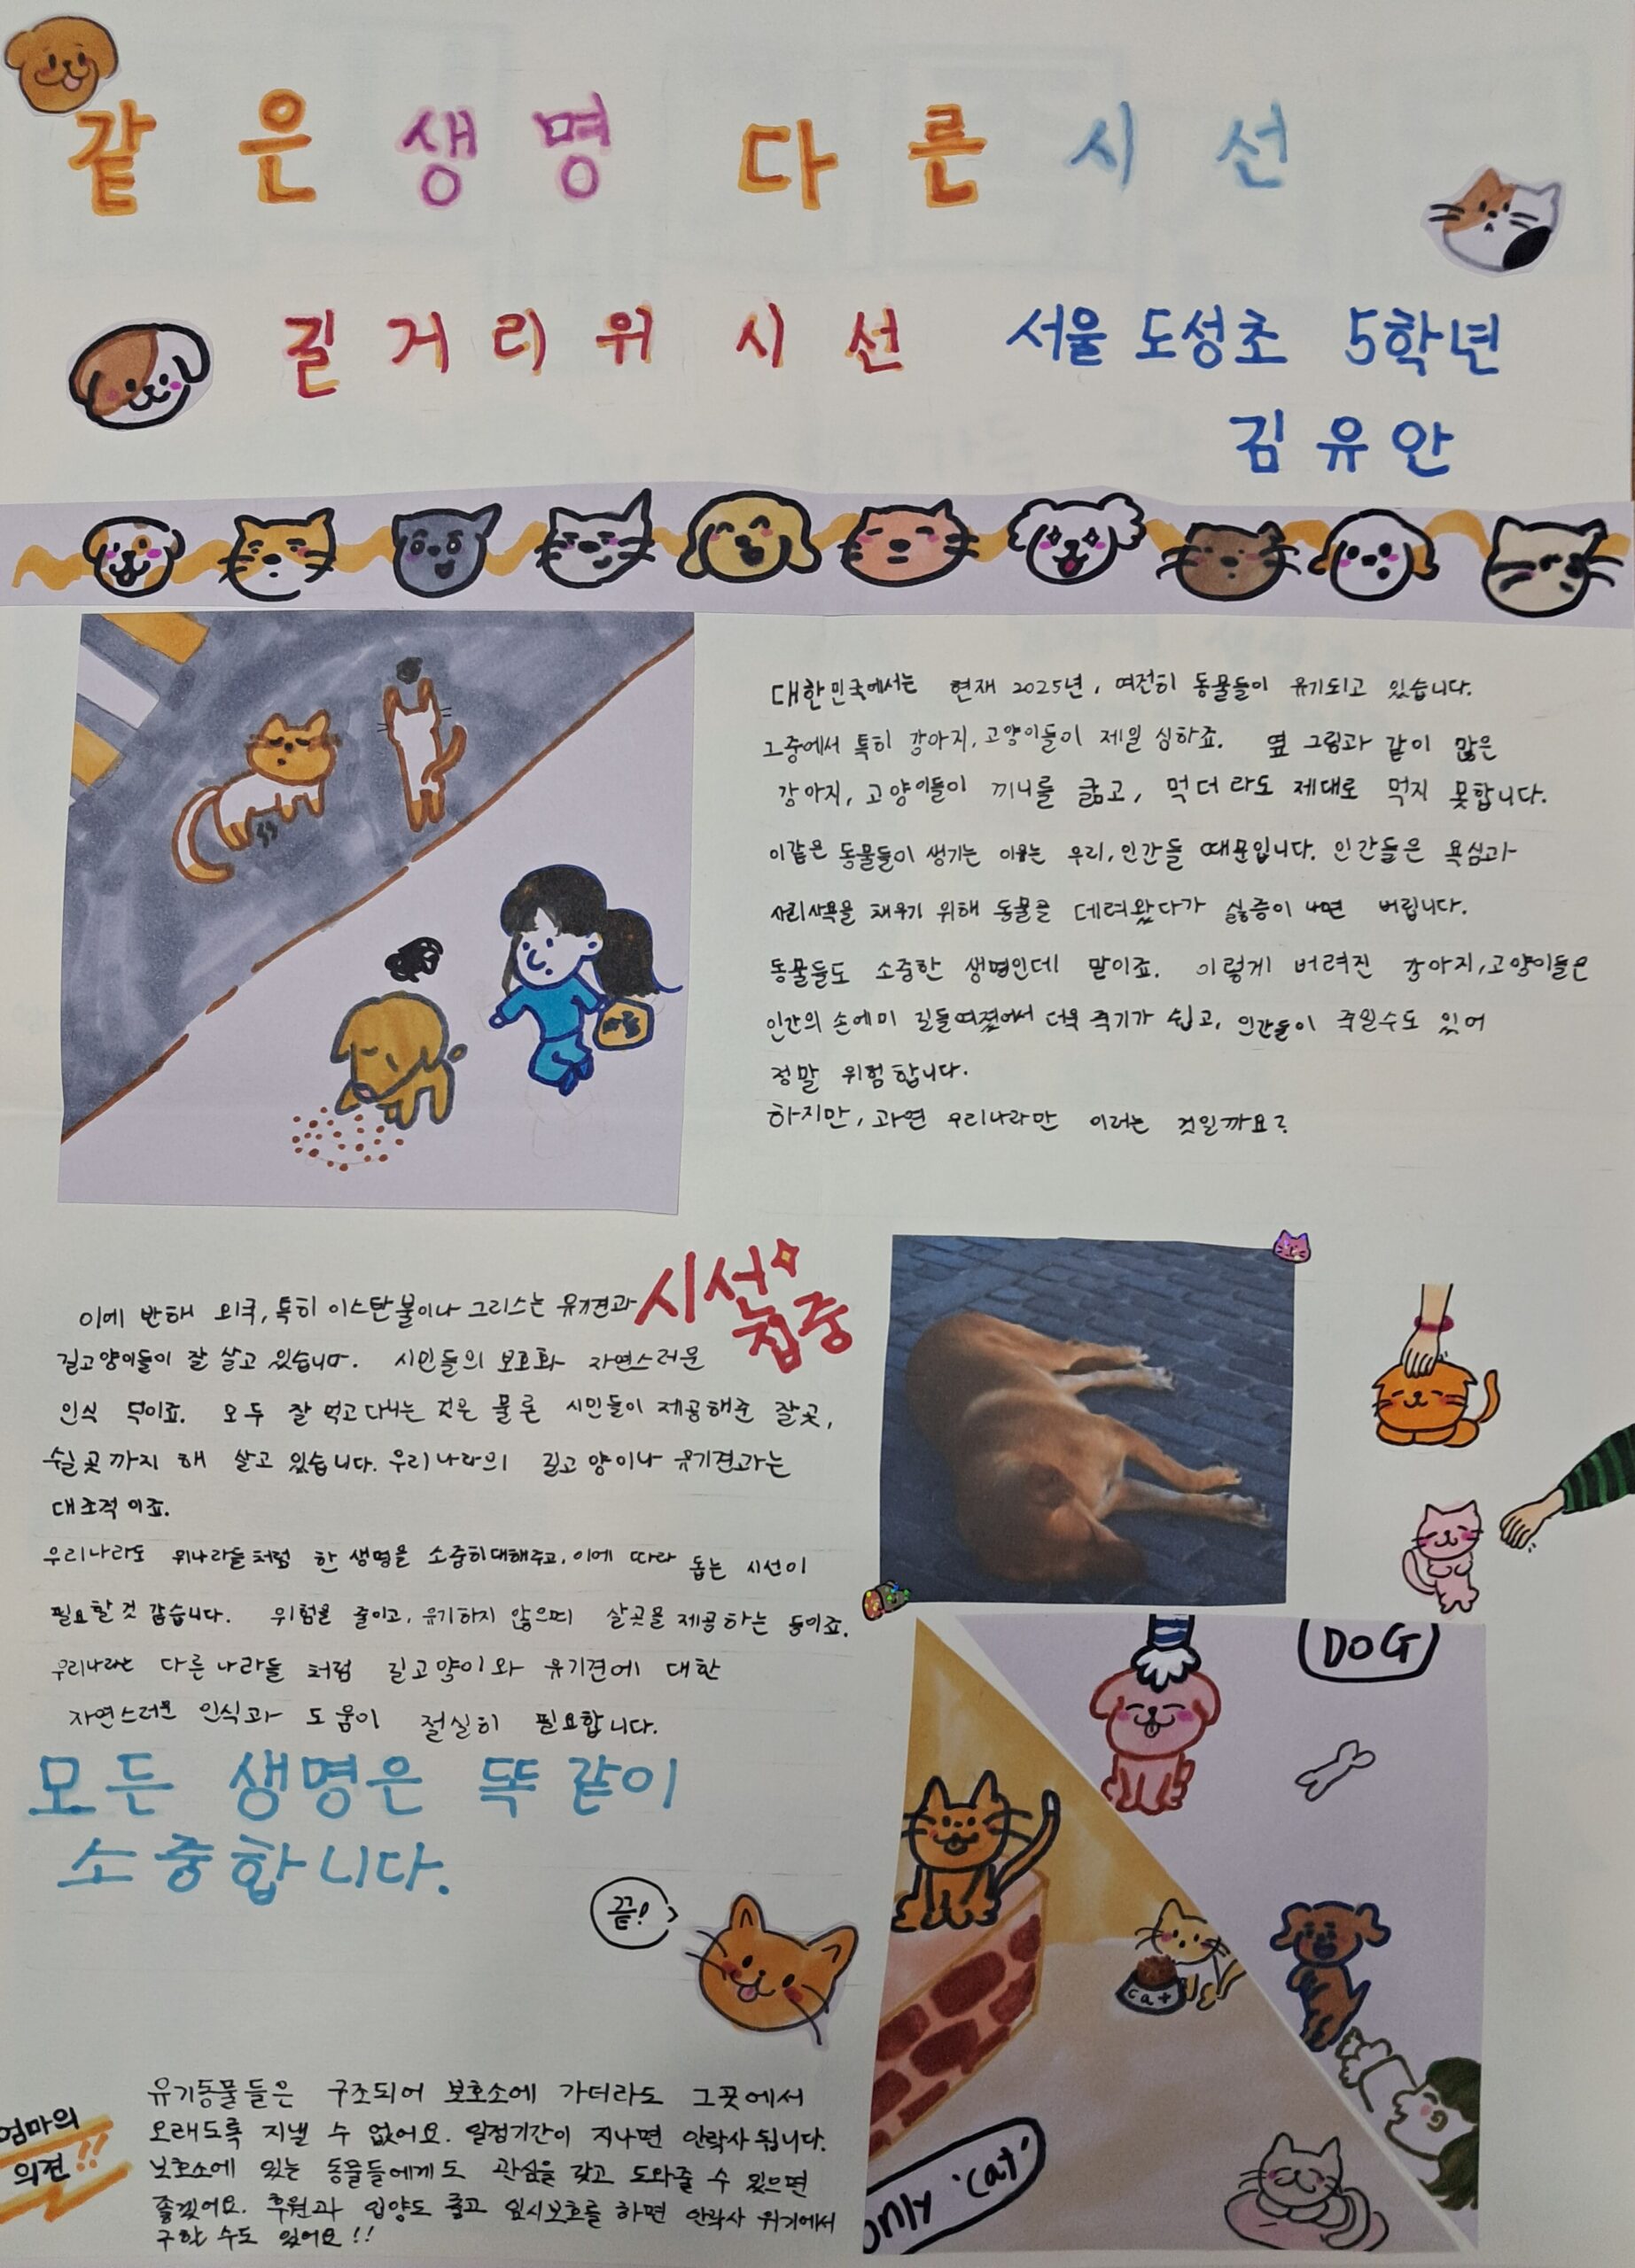 같은 생명 다른 시선
길거리 위 시선 서울 도성초 5학년
김유안
대한민국에서는 현재 2025년, 여전히 동물들이 유기되고 있습니다.
그중에서 특히 강아지, 고양이들이 제일 심하죠. 옆 그림과 같이 많은
강아지, 고양이들이 끼니를 굶고, 먹더라도 제대로 먹지 못합니다.
이같은 동물들이 생기는 이유는 우리, 인간들 때문입니다. 인간들은 욕심과
사리사욕을 채우기 위해 동물을 데려왔다가 싫증이 나면 버립니다.
동물들도 소중한 생명인데 말이죠. 이렇게 버려진 강아지, 고양이들은
인간의 손에 길들여졌어서 더욱 죽기가 쉽고, 인간들이 죽일수도 있어
정말 위험합니다.
하지만, 과연 우리나라만 이러는 것일까요?
시선집중
이에 반해 외국, 특히 이스탄불이나 그리스는 유기견과
길고양이들이 잘 살고 있습니다. 시민들의 보호와 자연스러운
인식 덕이죠. 모두 잘 먹고 다니는 것은 물론 시민들이 제공해준 잘곳,
쉴 곳까지 해 살고 있습니다. 우리나라의 길고양이나 유기견과는
대조적이죠.
우리나라도 위나라들처럼 한 생명을 소중히대해주고, 이에 따라 돕는 시선이
필요할것 같습니다. 위험을 줄이고, 유기하지 않으며 살곳을 제공하는 등이죠.
우리나라는 다른 나라들 처럼 길고양이와 유기견에 대한
자연스러운 인식과 도움이 절실히 필요합니다.
모든 생명은 똑같이
소중합니다.
끝!
DOG
cat
only 'cat'
엄마의
의견!!
유기동물들은 구조되어 보호소에 가더라도 그곳에서
오래도록 지낼 수 없어요. 일정기간이 지나면 안락사 됩니다.
보호소에 있는 동물들에게도 관심을 갖고 도와줄 수 있으면
좋겠어요. 후원과 입양도 좋고 임시보호를 하면 안락사 위기에서
구할 수도 있어요!!